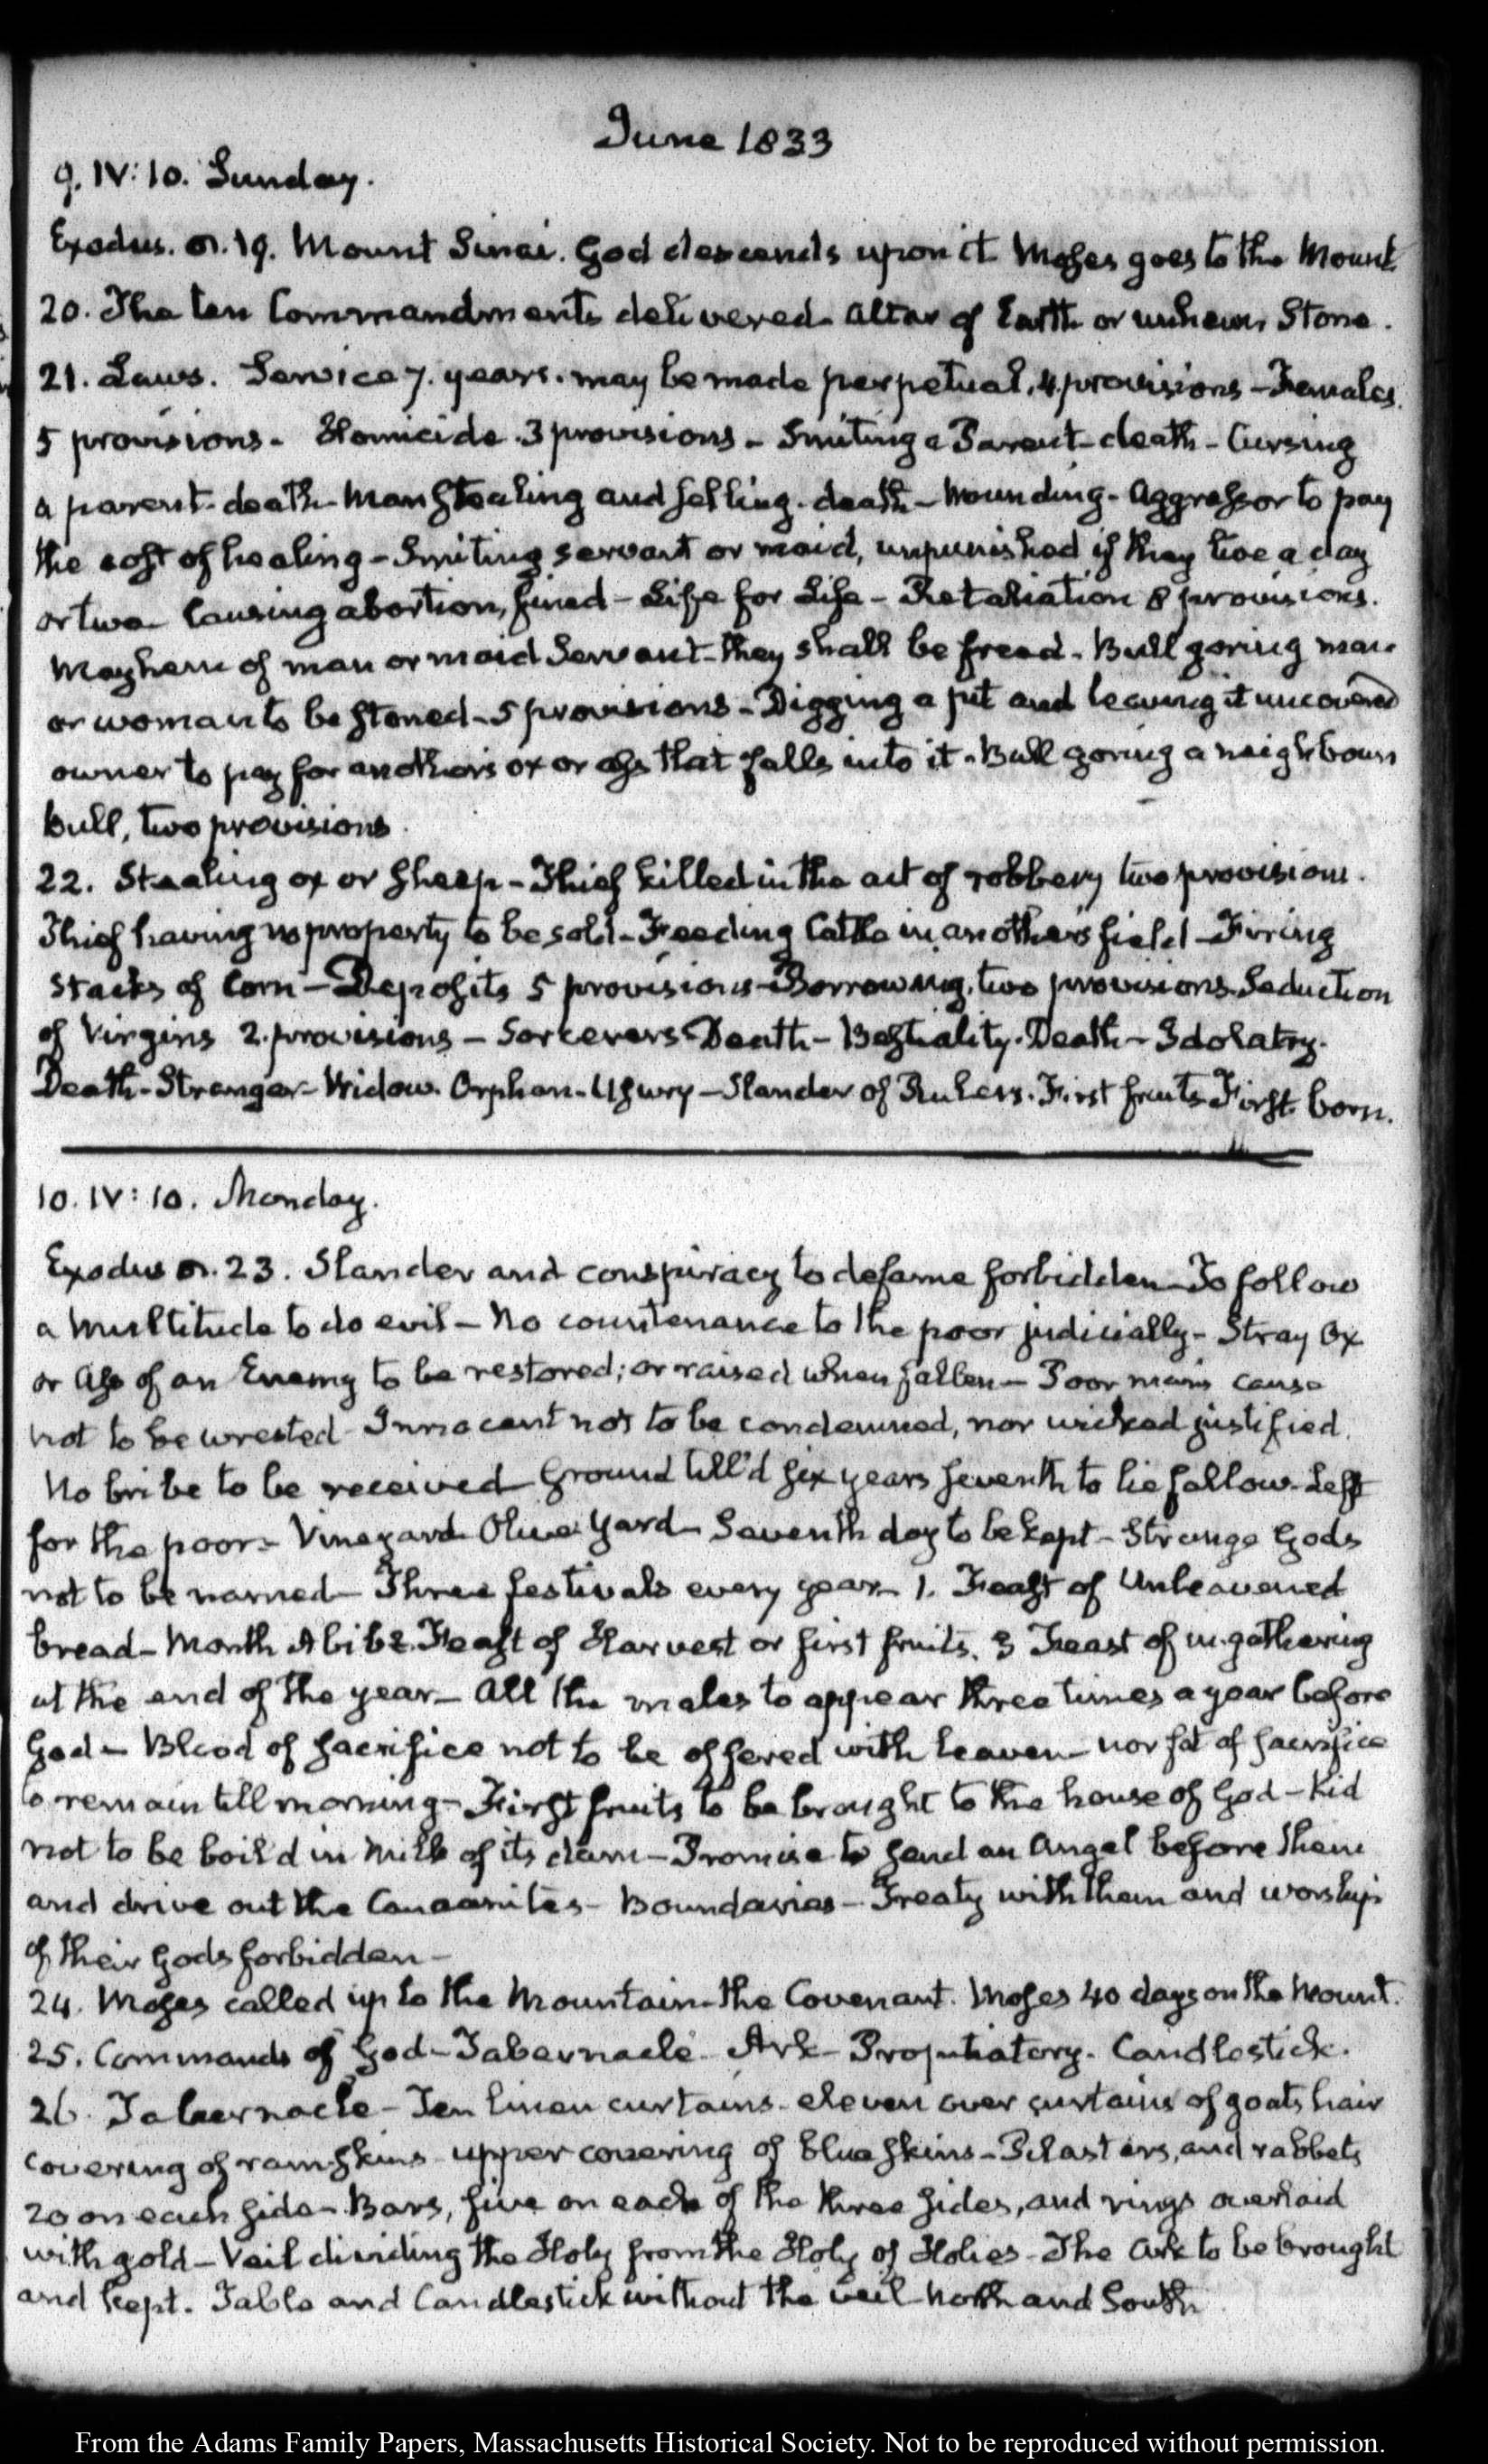 June 1833
9. IV:10. Sunday.
Exodus. 19. Mount Sinai. God descends upon it Moses goes to the Mount
20. The ten Commandments delivered. Altar of Earth or unhewn Stone.
21. Laws. Service 7. years. may be made perpetual. 4. provisions – Females.
5 provisions – Homicide. 3 provisions – Smiting a Parent – death – Cursing
a parent – death – Man Stealing and selling. death – Wounding – Aggressor to pay
the cost of healing – Smiting servant or maid, unpunished if they live a day
or two – Causing abortion, fined – Life for Life – Retaliation 8 provisions.
Mayhem of man or maid Servant – they shall be freed – Bull goring man
or woman to be stoned – 5 provisions – Digging a pit and leaving it uncovered
owner to pay for another's ox or ass that falls into it – Bull goring a neighbours
bull, two provisions.
22. Stealing ox or sheep – Thief killed in the act of robbery two provisions.
Thief having no property to be sold – Feeding Cattle in another's field – Firing
stacks of Corn – Deposits 5 provisions – Borrowing, two provisions. Seduction
of Virgins 2. provisions – Sorcerers Death – Bestiality. Death – Idolatry.
Death – Stranger – Widow. Orphan – Usury – Slander of Rulers. First fruits First born.
10. IV:10. Monday.
Exodus 23. Slander and conspiracy to defame forbidden – To follow
a multitude to do evil – No countenance to the poor judicially – Stray Ox
or Ass of an Enemy to be restored; or raised when fallen – Poor man's cause
not to be wrested – Innocent not to be condemned, nor wicked justified.
No bribe to be received – Ground till'd six years seventh to lie fallow – Left
for the poor – Vineyard – Olive Yard – Seventh day to be kept – Strange Gods
not to be named – Three festivals every year – 1. Feast of Unleavened
bread – Month Abib 2. Feast of Harvest or first fruits. 3 Feast of ingathering
at the end of the year – All the males to appear three times a year before
God – Blood of sacrifice not to be offered with leaven – nor fat of sacrifice
to remain till morning – First fruits to be brought to the house of God – Kid
not to be boil'd in Milk of its dam – Promise to send an Angel before them
and drive out the Canaanites – Boundaries – Treaty with them and worship
of their Gods forbidden –
24. Moses called up to the Mountain – the Covenant. Moses 40 days on the Mount.
25. Commands of God – Tabernacle – Ark – Propitiatory. Candlestick.
26. Tabernacle – Ten linen curtains – eleven over curtains of goats hair
covering of ram-skins – upper covering of blue skins – Pilasters, and rabbets
20 on each side – Bars, five on each of the three sides, and rings overlaid
with gold – Veil dividing the Holy from the Holy of Holies – The Ark to be brought
and kept. Table and Candlestick without the veil North and South
From the Adams Family Papers, Massachusetts Historical Society. Not to be reproduced without permission.